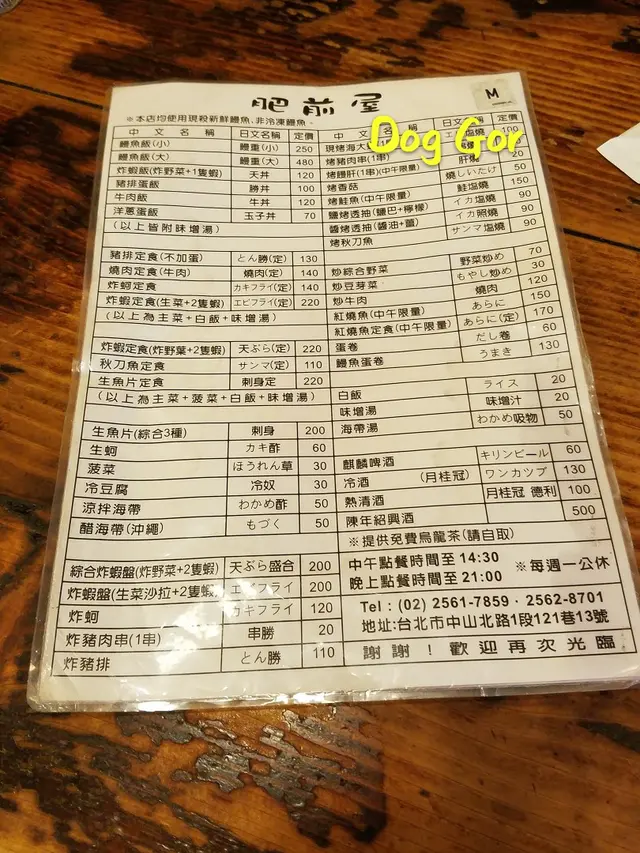 肥前屋
M
※本店均使用現殺新鮮鰻魚,非冷凍鰻魚。
Dog Gor
中文名稱 日文名稱 定價
鰻魚飯(小) 鰻重(小) 250
鰻魚飯(大) 鰻重(大) 480
炸蝦飯(炸野菜+1隻蝦) 天丼 120
豬排蛋飯 勝丼 100
牛肉飯 牛丼 120
洋蔥蛋飯 玉子丼 70
(以上皆附味增湯)
豬排定食(不加蛋) とん勝(定) 130
燒肉定食(牛肉) 燒肉(定) 140
炸蚵定食 カキフライ(定) 140
炸蝦定食(生菜+2隻蝦) エビフライ(定) 220
(以上為主菜+白飯+味增湯)
炸蝦定食(炸野菜+2隻蝦) 天ぷら(定) 220
秋刀魚定食 サンマ(定) 110
生魚片定食 刺身定 220
(以上為主菜+菠菜+白飯+味增湯)
生魚片(綜合3種) 刺身 200
生蚵 カキ酢 60
菠菜 ほうれん草 30
冷豆腐 冷奴 30
涼拌海帶 わかめ酢 50
醋海帶(沖繩) もづく 50
綜合炸蝦盤(炸野菜+2隻蝦) 天ぷら盛合 200
炸蝦盤(生菜沙拉+2隻蝦) エビフライ 200
炸蚵 カキフライ 120
炸豬肉串(1串) 串勝 20
炸豬排 とん勝 110
中文名稱 日文名稱 定價
現烤海大 塩燒 100
烤豬肉串(1串) 20
烤鰻肝(1串)(中午限量) 肝燒 50
烤香菇 燒しいたけ 50
烤鮭魚(中午限量) 鮭塩燒 150
鹽烤透抽(鹽巴+檸檬) イカ塩燒 90
醬烤透抽(醬油+薑) イカ照燒 90
烤秋刀魚 サンマ塩燒 90
炒綜合野菜 野菜炒め 70
炒豆芽菜 もやし炒め 30
炒牛肉 燒肉 120
紅燒魚(中午限量) あらに 150
紅燒魚定食(中午限量) あらに(定) 170
蛋卷 だし卷 60
鰻魚蛋卷 うまき 130
白飯 ライス 20
味增湯 味增汁 20
海帶湯 わかめ吸物 50
麒麟啤酒 キリンビール 60
冷酒 (月桂冠) ワンカツプ 130
熱清酒 月桂冠 德利 100
陳年紹興酒 500
※提供免費烏龍茶(請自取)
中午點餐時間至 14:30
晚上點餐時間至 21:00
※每週一公休
Tel:(02) 2561-7859 · 2562-8701
地址:台北市中山北路1段121巷13號
謝謝!歡迎再次光臨